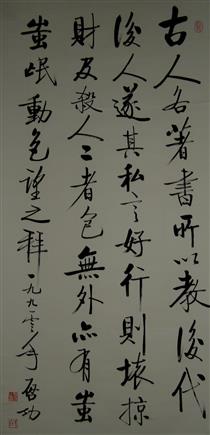 古人各著書所以教後代
後人遂其私言好行則壞掠
財及殺人二者包無外亦有蚩
蚩氓動色望之拜一九九零年啓功